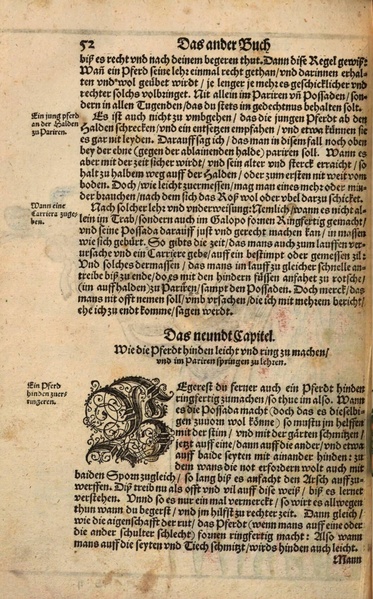 52 Das ander Buch
biß es recht vnd nach deinem begeren thut. Dann dise Regel gewiß:
Wañ ein Pferd seine lehr einmal recht gethan/ vnd darinnen erhal-
ten vnd wol geübet wirdt/ je lenger je mehr es geschicklicher vnd
rechter solchs volbringt. Nit allein im Pariren vñ Possaden/ son-
dern in allen Tugenden/ das du stets im gedechtnus behalten solt.
Ein jung pferd
an der Halden
zu Pariren.
Es ist auch nicht zu vmbgehen/ das die jungen Pferdt ab den
Halden schrecken/ vnd ein entsetzen empfahen/ vnd etwa künnen sie
es gar nit leyden. Darauff sag ich/ das man in disem fall noch oben
bey der ebne (gegen der ablainenden halde) pariren soll. Wann es
aber mit der zeit sicher wirdt/ vnd sein alter vnd sterck erraicht/ so
halt zu halbem weg auff der Halden/ oder zum ersten nit weit vom
boden. Doch/ wie leicht zuermessen/ mag man eines mehr oder min-
der brauchen/ nach dem sich das Roß wol oder vbel darzu schicket.
Wann eine
Carriera zuge-
ben.
Nach solcher lehr vnd vnderweisung: Nemlich/ wann es nicht al-
lein im Trab/ sondern auch im Galopo somen Ringfertig gemacht/
vnd seine Possada darauff just vnd gerecht machen kan/ in massen
wie sich gebürt. So gibts die zeit/ das mans auch zum lauffen ver-
ursache vnd ein Carriere gebs/ auff ein bestimpt oder gemessen zil:
Vnd solches dermassen/ das mans im lauff zu gleicher schnelle an-
treibe biß zu ende/ do es mit den hindern füssen anfaher zu rotsche/
(im auffhalden/ zu Pariren/ sampt den Possaden. Doch merck/ das
mans nit offt nemen soll/ vmb vrsachen/ die ich mit mehren bericht/
ehe ich zu endt komme/ sagen werdt.
Das neundt Capitel.
Wie die Pferdt hinden leicht vnd ring zu machen/
vnd im Pariren springen zu lehren.
Ein Pferd
hinden zuer-
ringeren.
BEgerest du ferner auch ein Pferdt hinden
ringfertig zumachen/ so thue im also. Wann
es die Possada macht (doch das es dieselbi-
gen zuuorn wol könne) so mustu jm helffen
mit der stim/ vnd mit der gärten schmitzen/
jetzt auff eine/ dann auff die ander/ vnd etwan
auff baide seyten mit ainander hinden: zu
dem wans die not erfordern wolt auch mit
baiden Sporn zugleich/ so lang biß es anfacht den Arsch auff zu-
werffen. Diß treib nu als offt vnd vil auff dise weiß/ biß es lernet
verstehen. Vnnd so es nur ein mal vermerckt/ so wirt es allwegen
thun wann du begerst/ vnd jm hilfst zu rechter zeit. Dann gleich/
wie die aigenschafft der rut/ das Pferdt (wenn mans auff eine oder
die ander schulter schlecht) fornen ringfertig macht: Also wann
mans auff die seyten vnd Tiech schmitzt/ wirds hinden auch leicht.
Wann